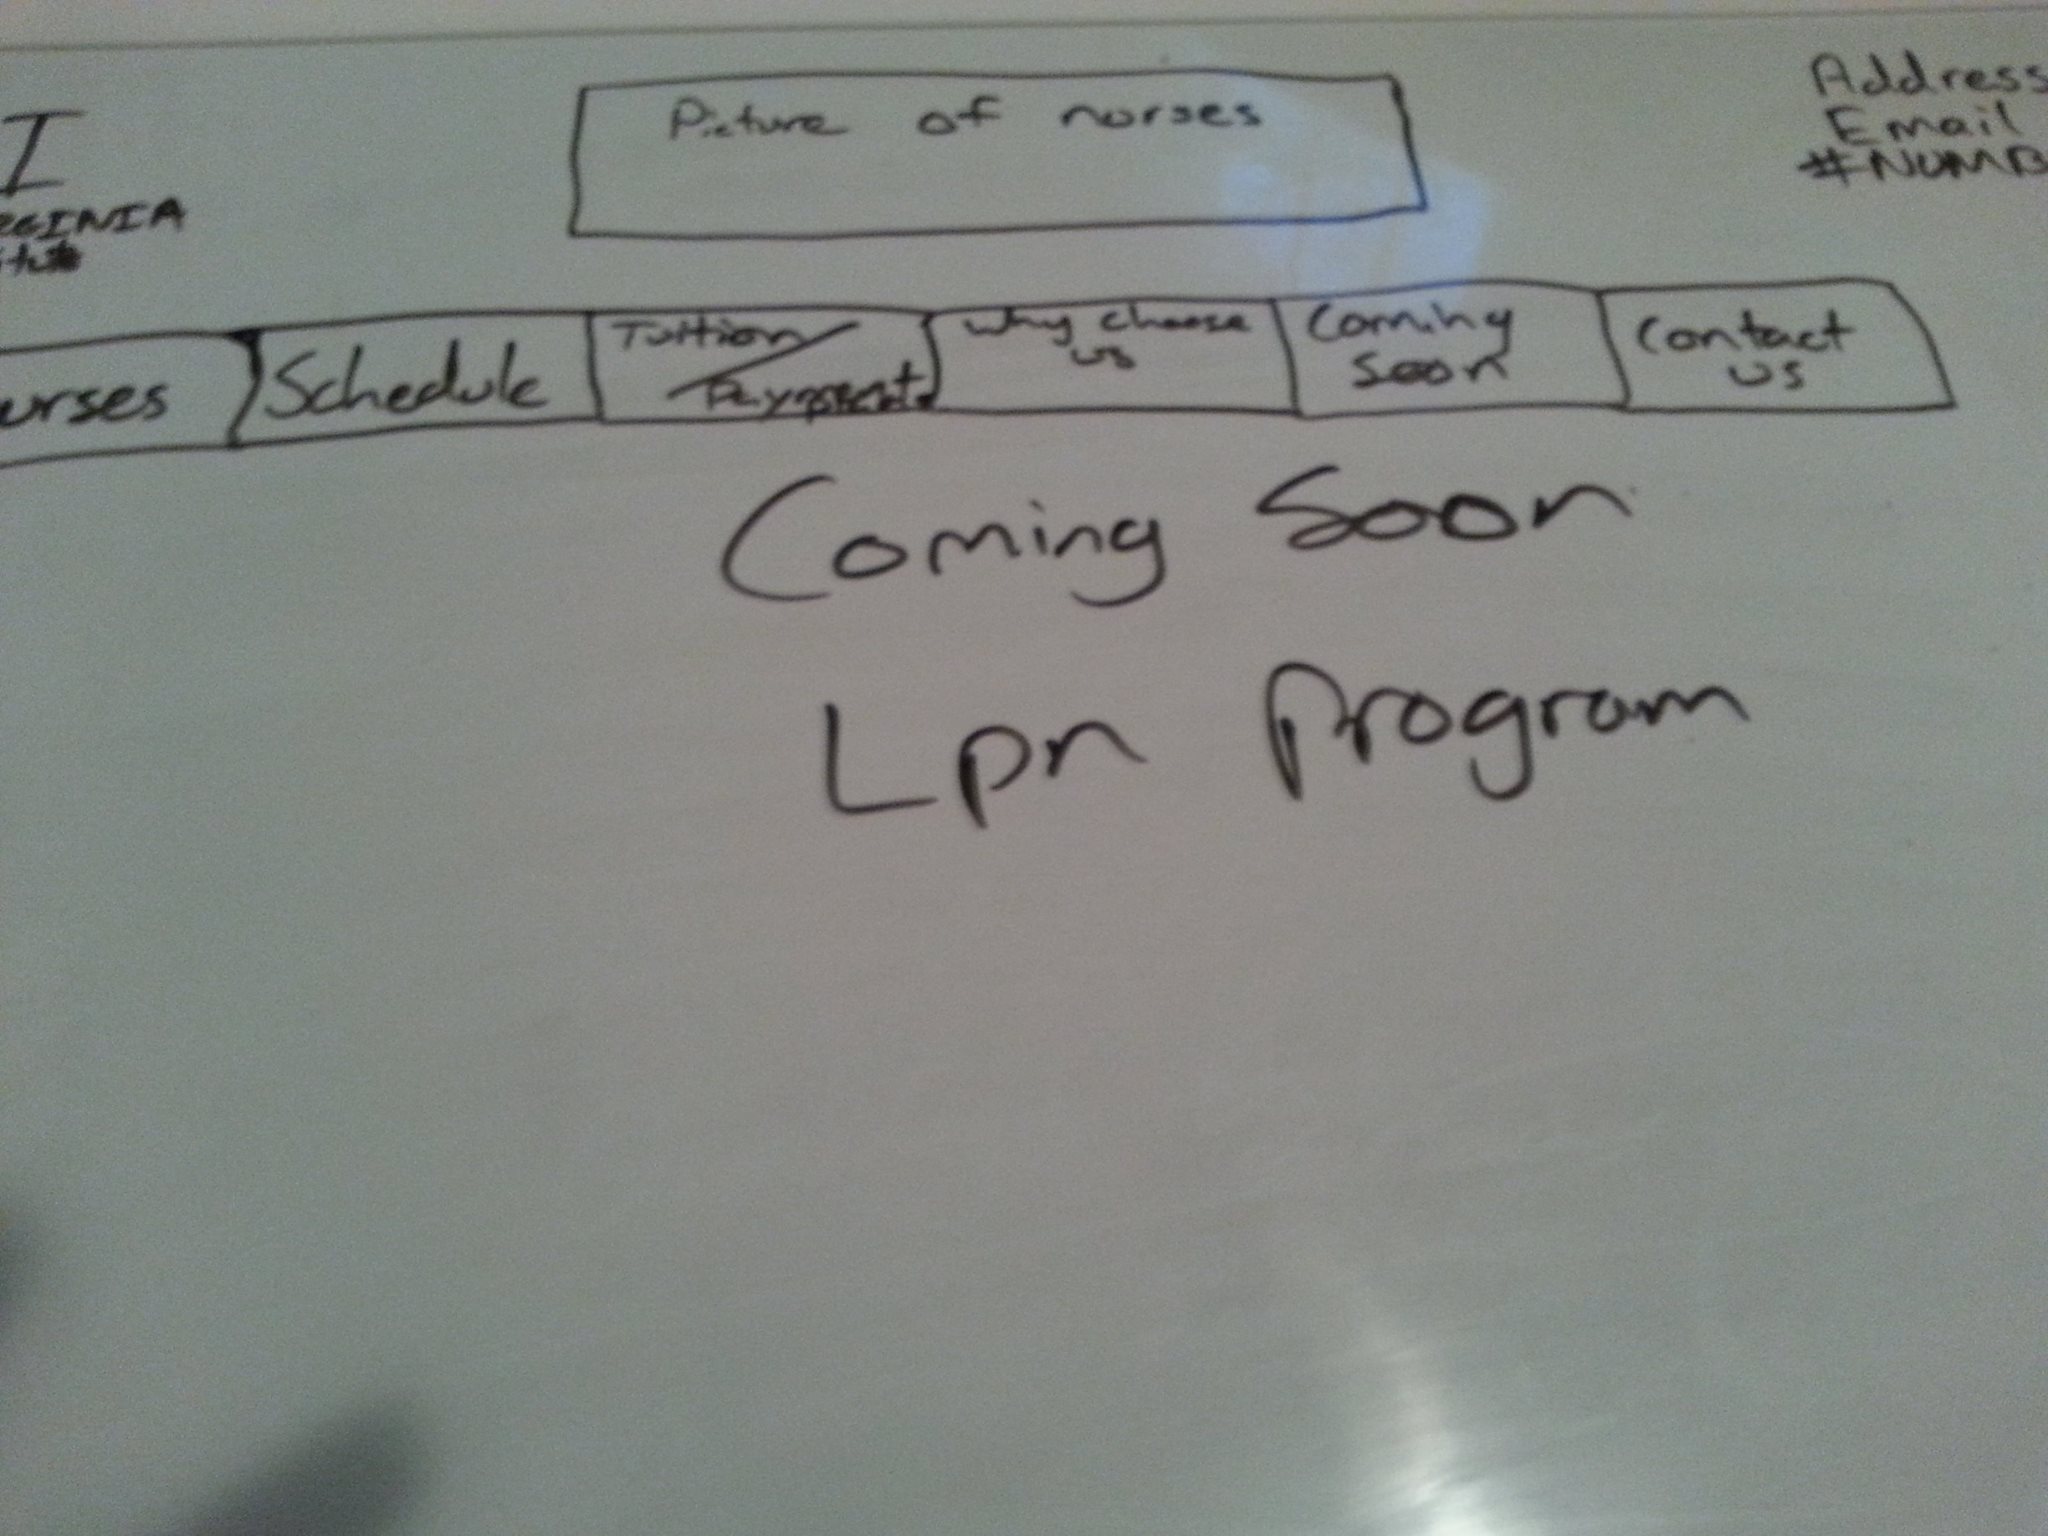 I
Picture of norses
Address
Email
#NUMB
RGINIA
urses
Schedule
Tuition/
Payments
Why choose
us
Coming
Soon
Contact
us
Coming Soon
Lpn Program